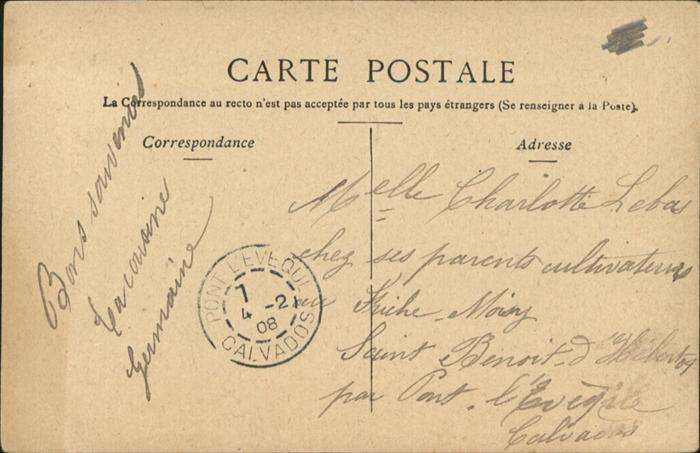 CARTE POSTALE
La Correspondance au recto n'est pas acceptée par tous les pays étrangers (Se renseigner à la Poste).
Correspondance
Adresse
Bons souvenirs
Ta cousine
Germaine
Melle Charlotte Lebas
chez ses parents cultivateurs
au Friche Moisy
Saint Benoit d'Hébertot
par Pont l'Evêque
Calvados
PONT L'EVEQUE
4 -2
08
CALVADOS